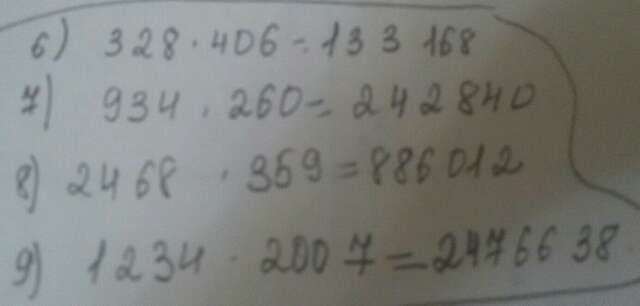 6) 328 · 406 = 133 168
7) 934 · 260 = 242 840
8) 2468 · 359 = 886 012
9) 1234 · 2007 = 2476638